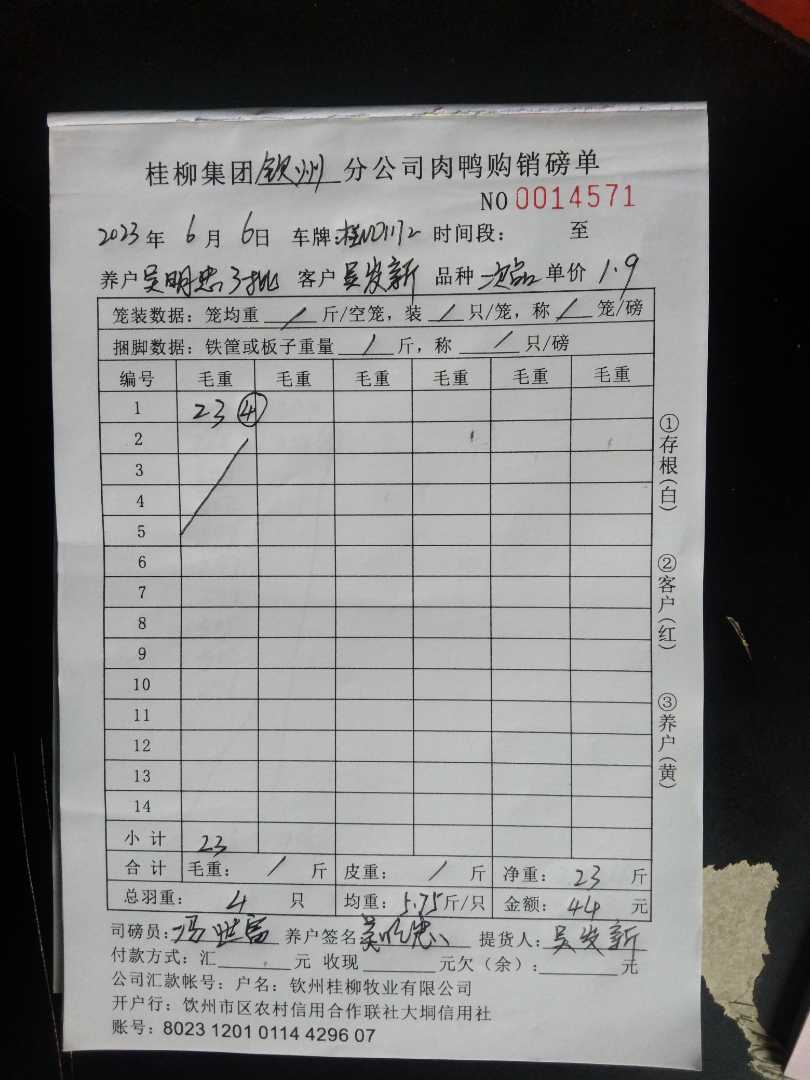 桂柳集团钦州分公司肉鸭购销磅单
NO 0014571
2023年 6月 6日 车牌: 时间段： 至
养户吴明忠3批 客户吴发新 品种 次品 单价 1.9
笼装数据：笼均重 / 斤/空笼，装 / 只/笼，称 / 笼/磅
捆脚数据：铁筐或板子重量 / 斤，称 / 只/磅
编号 毛重 毛重 毛重 毛重 毛重 毛重
1 23 ④
2
3
4
5
6
7
8
9
10
11
12
13
14
小计 23
合计 毛重： / 斤 皮重： / 斤 净重： 23 斤
总羽重： 4 只 均重：5.75斤/只 金额： 44 元
司磅员： 养户签名 提货人：吴发新
付款方式：汇 元 收现 元欠（余）： 元
公司汇款帐号：户名：钦州桂柳牧业有限公司
开户行：饮州市区农村信用合作联社大垌信用社
账号：8023 1201 0114 4296 07
①存根（白）
②客户（红）
③养户（黄）